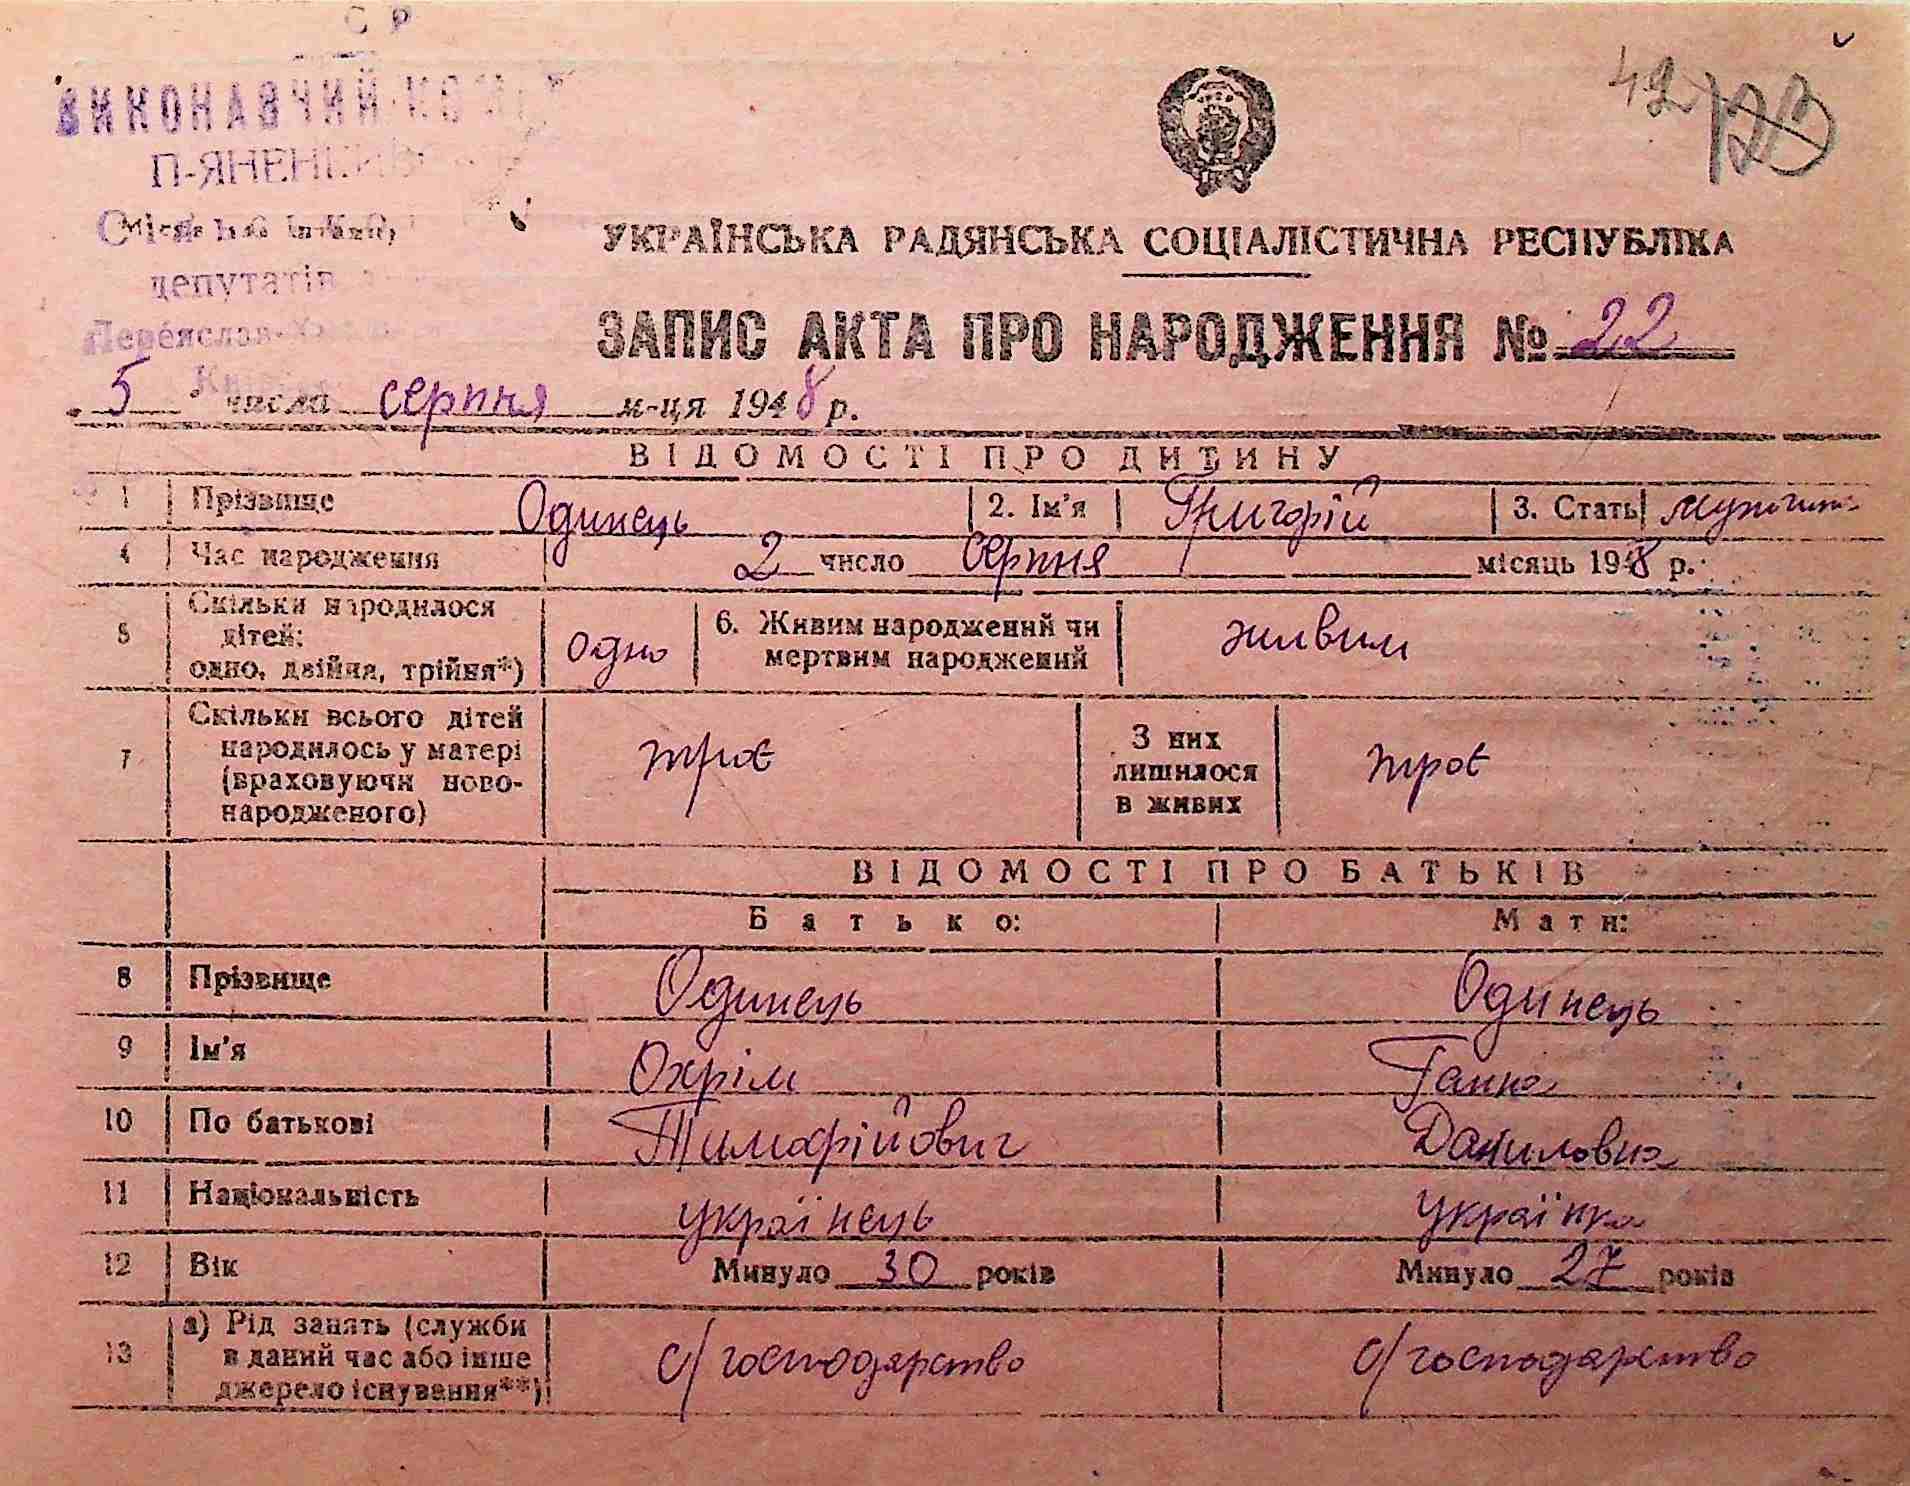 ВИКОНАВЧИЙ
П-ЯНЕНКІВ
депутатів
Переяслав-
42
УКРАЇНСЬКА РАДЯНСЬКА СОЦІАЛІСТИЧНА РЕСПУБЛІКА
ЗАПИС АКТА ПРО НАРОДЖЕННЯ № 22
5 числа серпня м-ця 1948 р.
ВІДОМОСТІ ПРО ДИТИНУ
1 Прізвище Одинець 2. Ім'я Григорій 3. Стать
4 Час народження 2 число серпня місяць 1948 р.
5 Скільки народилося дітей: одно, двійня, трійня*) одно 6. Живим народжений чи мертвим народжений живим
7 Скільки всього дітей народилось у матері (враховуючи новонародженого) троє З них лишилося в живих троє
ВІДОМОСТІ ПРО БАТЬКІВ
Батько: Мати:
8 Прізвище Одинець Одинець
9 Ім'я Охрім Ганна
10 По батькові Тимофійович Даниловна
11 Національність українець українка
12 Вік Минуло 30 років Минуло 27 років
13 а) Рід занять (служби в даний час або інше джерело існування**) с/господарство с/господарство